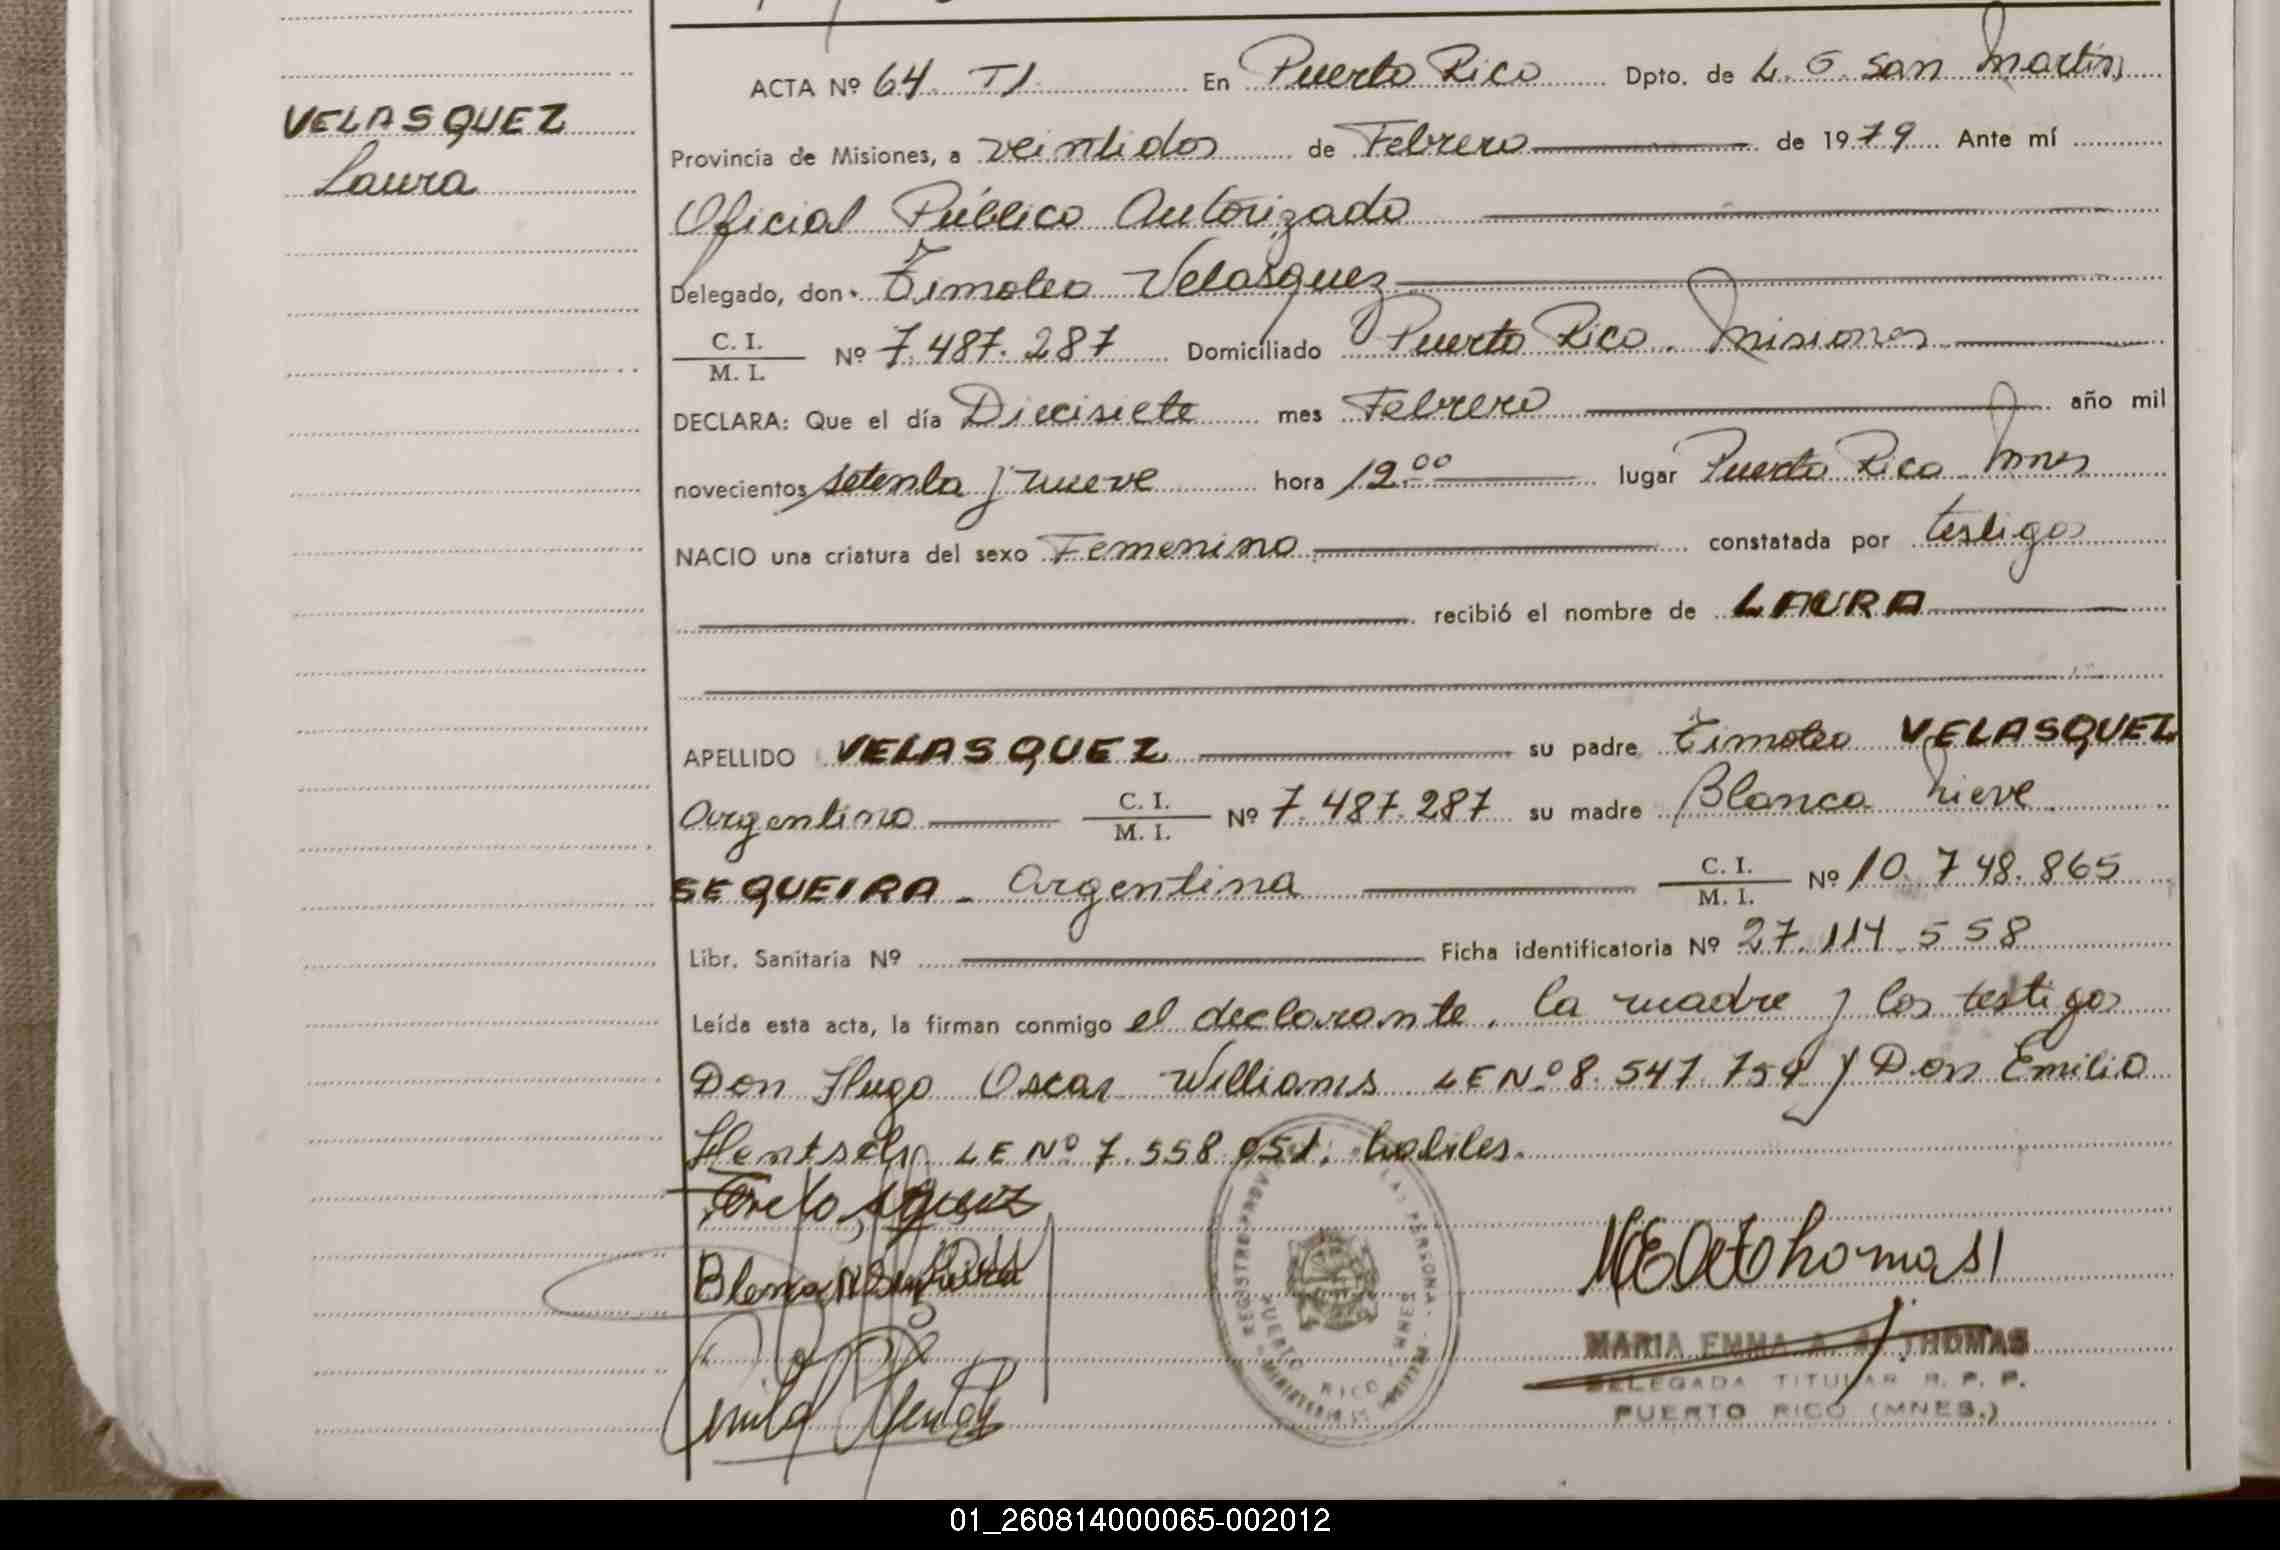 VELASQUEZ
Laura
ACTA Nº 64. TI. En Puerto Rico Dpto. de L. G. San Martin
Provincia de Misiones, a veintidos de Febrero de 1979. Ante mí
Oficial Público Autorizado
Delegado, don Timoleo Velasquez
C. I. / M. I. Nº 7.487.287 Domiciliado Puerto Rico. Misiones
DECLARA: Que el día Diecisiete mes Febrero año mil
novecientos setenta y nueve hora 12.00 lugar Puerto Rico Mnes
NACIO una criatura del sexo Femenino constatada por testigos
recibió el nombre de LAURA
APELLIDO VELASQUEZ su padre Timoleo VELASQUEZ
Argentino C. I. / M. I. Nº 7.487.287 su madre Blanca Nieve
SEQUEIRA - Argentina C. I. / M. I. Nº 10.748.865
Libr. Sanitaria Nº Ficha identificatoria Nº 27.114.558
Leída esta acta, la firman conmigo el declarante, la madre y los testigos
Don Hugo Oscar Williams LE Nº 8.547.754 y Don Emilio
Hentschy LE Nº 7.558.051. habiles.
PUERTO RICO - MNES
MARIA EMMA A. THOMAS
DELEGADA TITULAR R. P. P.
PUERTO RICO (MNES.)
01_260814000065-002012